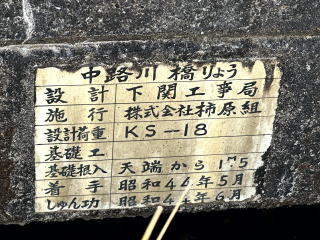 中路川橋りょう
設計 下関工事局
施行 株式会社柿原組
設計荷重 KS-18
基礎工
基礎根入 天端から1ᵐ5
着手 昭和44年5月
しゅん功 昭和44年6月